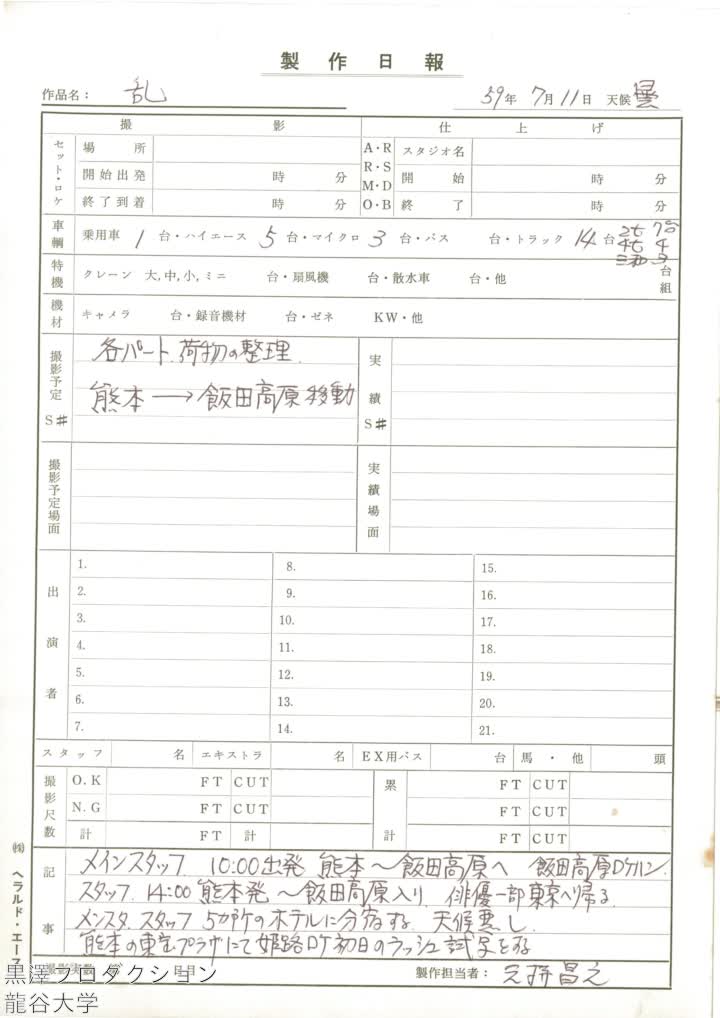 製作日報
作品名: 乱 59年 7月 11日 天候 曇
撮影 仕上げ
セット・ロケ 場所 A・R R・S M・D O・B スタジオ名
開始出発 時 分 開始 時 分
終了到着 時 分 終了 時 分
車輌 乗用車 1 台・ハイエース 5 台・マイクロ 3 台・バス 台・トラック 14 台 2t 7台
4t 4
三和 3
特機 クレーン 大,中,小,ミニ 台・扇風機 台・散水車 台・他 台組
機材 キャメラ 台・録音機材 台・ゼネ KW・他
撮影予定 S# 各パート、荷物の整理. 実績 S#
熊本→飯田高原移動
撮影予定場面 実績場面
出演者
1. 8. 15.
2. 9. 16.
3. 10. 17.
4. 11. 18.
5. 12. 19.
6. 13. 20.
7. 14. 21.
スタッフ 名 エキストラ 名 EX用バス 台 馬・他 頭
撮影尺数 O.K FT CUT 累計 FT CUT
N.G FT CUT FT CUT
計 FT 計 FT CUT
記事
メインスタッフ 10:00出発 熊本〜飯田高原へ 飯田高原ロケハン.
スタッフ. 14:00 熊本発〜飯田高原入り. 俳優一部東京へ帰る.
メンスタ.スタッフ 5カ所のホテルに分宿する. 天候悪し.
熊本の東宝プラザにて姫路ロケ初日のラッシュ試写をする
撮影実数 日目 製作担当者: 昌之
㈱ ヘラルド・エース
黒澤プロダクション
龍谷大学